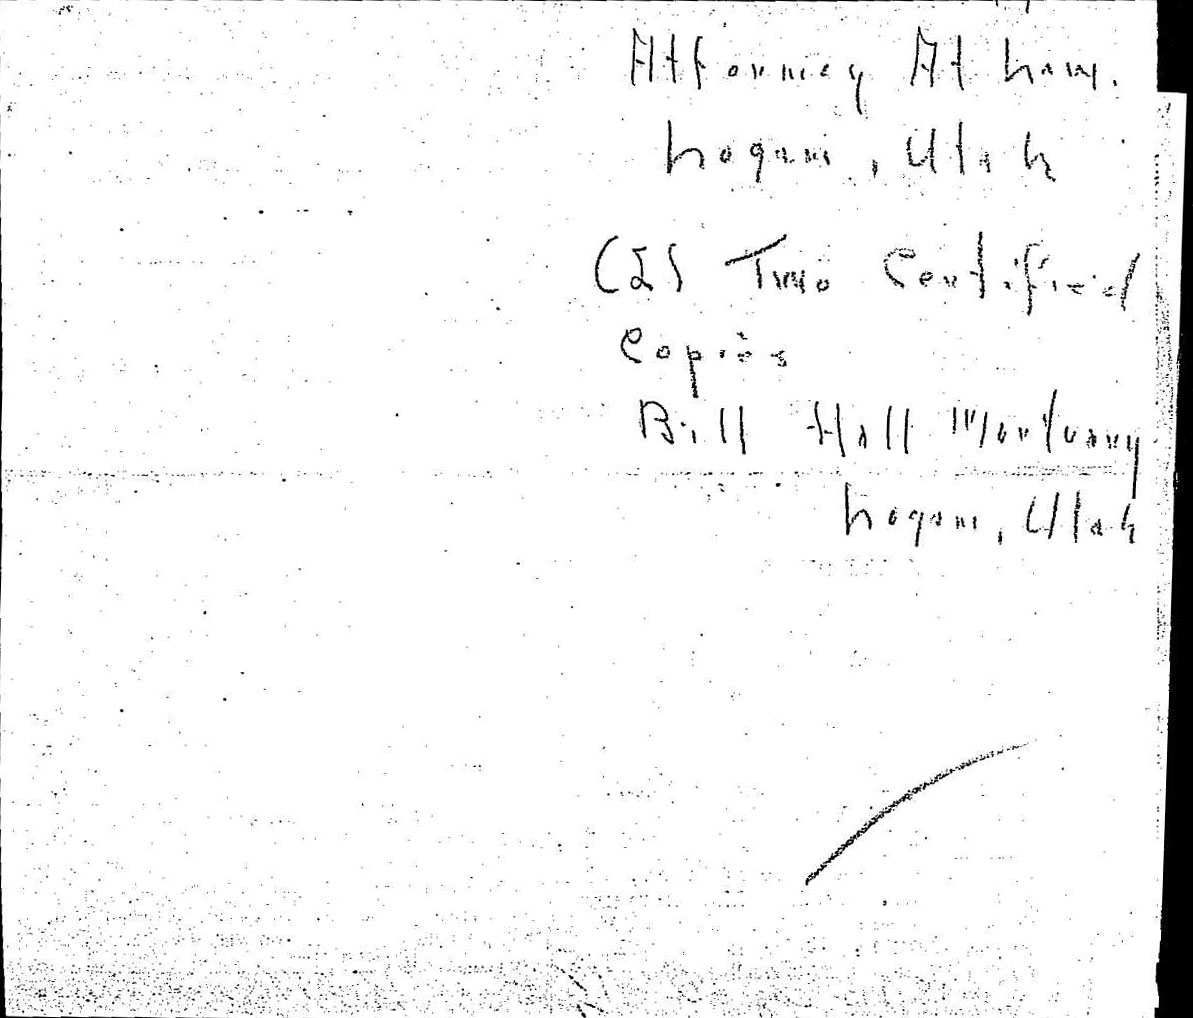 Attorney At Law.
Logan, Utah
(2) Two Certified
Copies
Bill Hall Mortuary
Logan, Utah